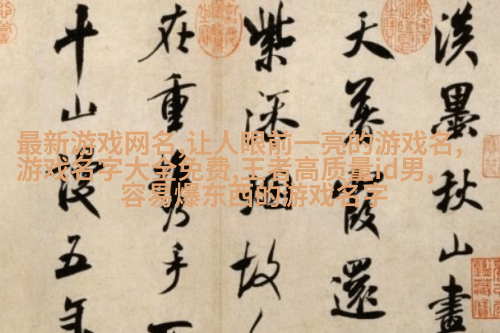 最新游戏网名,让人眼前一亮的游戏名,
游戏名字大全免费,王者高质量id男,
容易爆东西的游戏名字
淡墨秋山畫
天暮霞還
紫添煙故
在重攜手
平山謾五年